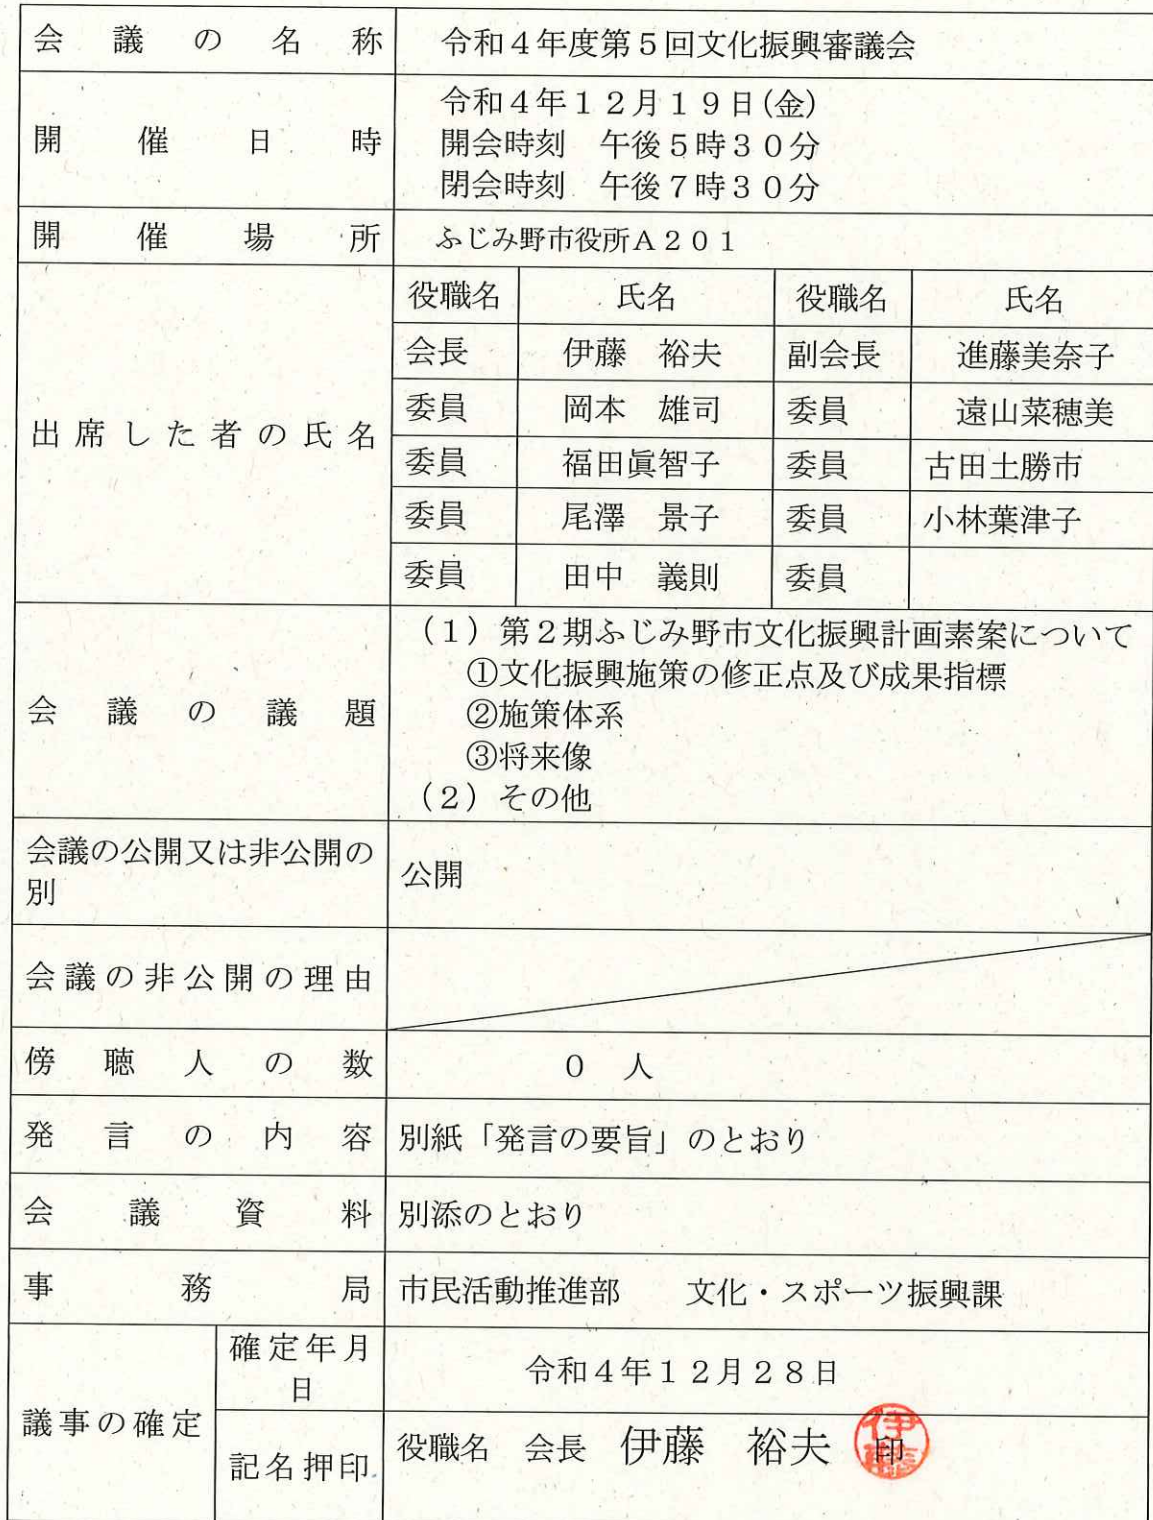 会議の名称 令和４年度第５回文化振興審議会
開催日時 令和４年１２月１９日(金)
開会時刻 午後５時３０分
閉会時刻 午後７時３０分
開催場所 ふじみ野市役所Ａ２０１
出席した者の氏名
役職名 氏名 役職名 氏名
会長 伊藤 裕夫 副会長 進藤美奈子
委員 岡本 雄司 委員 遠山菜穂美
委員 福田眞智子 委員 古田土勝市
委員 尾澤 景子 委員 小林葉津子
委員 田中 義則 委員
会議の議題
（１）第２期ふじみ野市文化振興計画素案について
①文化振興施策の修正点及び成果指標
②施策体系
③将来像
（２）その他
会議の公開又は非公開の
別
公開
会議の非公開の理由
傍聴人の数 ０ 人
発言の内容 別紙「発言の要旨」のとおり
会議資料 別添のとおり
事務局 市民活動推進部 文化・スポーツ振興課
議事の確定
確定年月
日
令和４年１２月２８日
記名押印 役職名 会長 伊藤 裕夫 印
伊藤